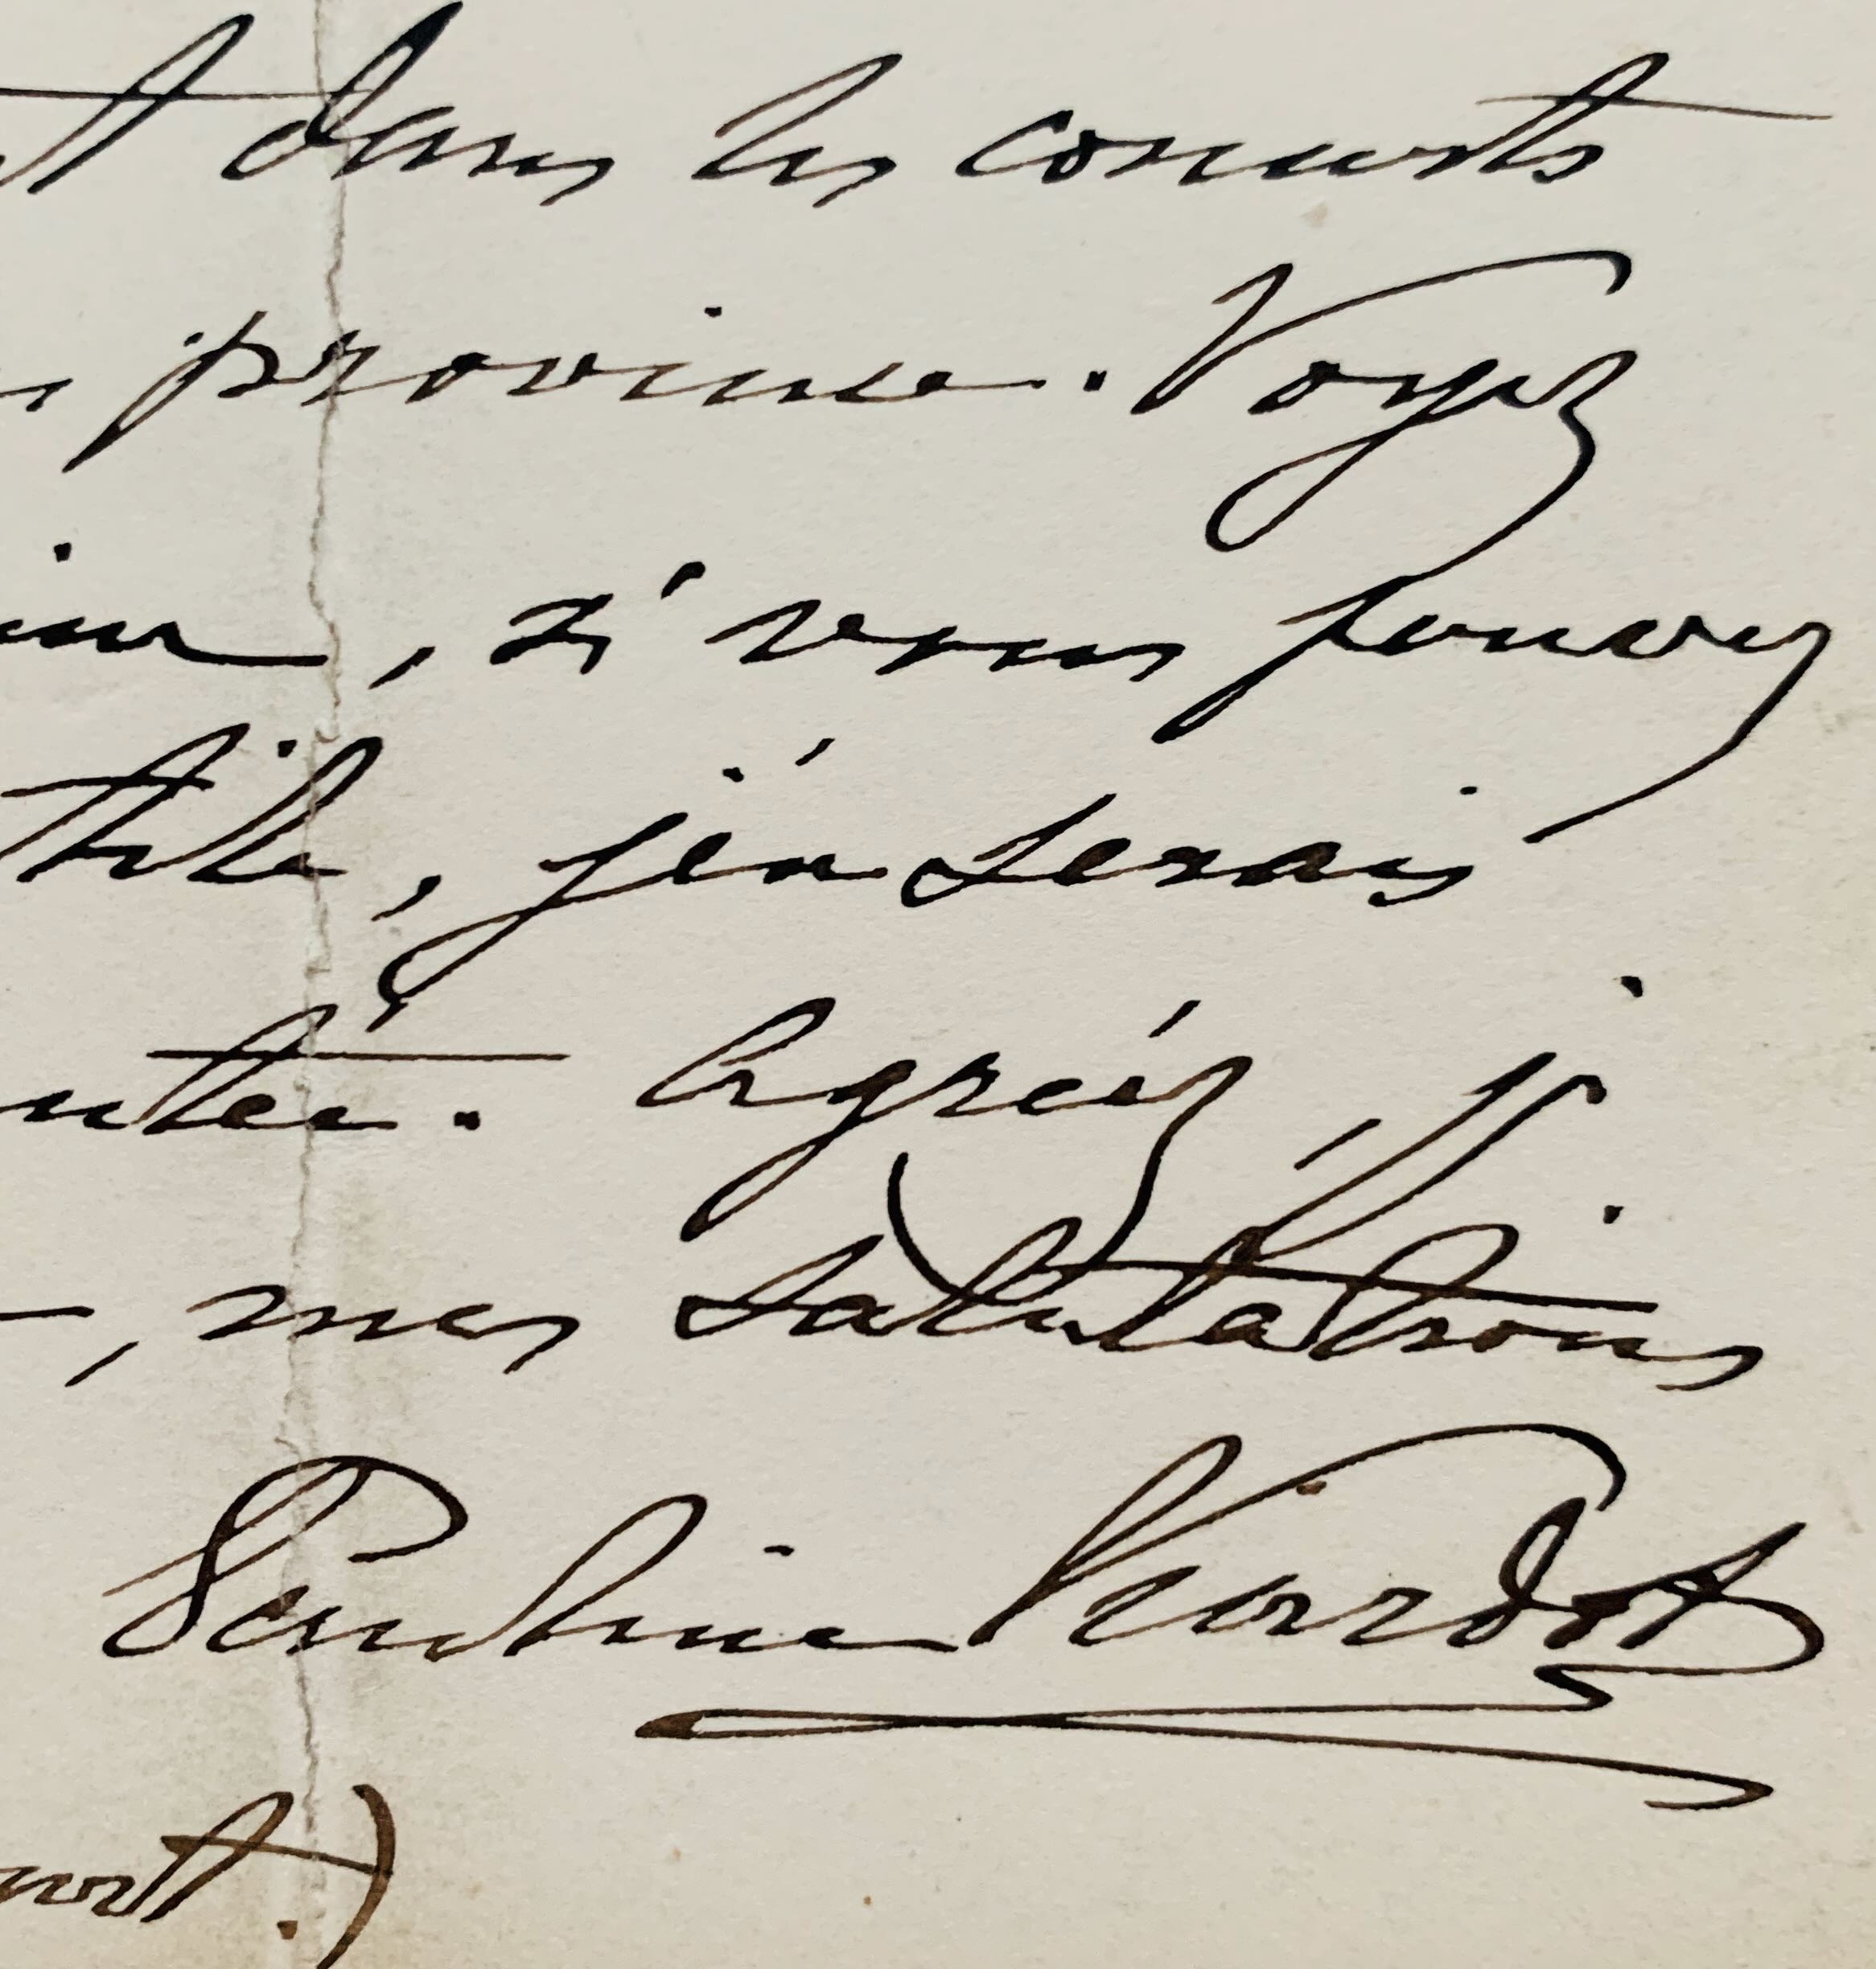 t dans les concerts
province. Voyez
, si vous pouvez
, j'en serais
. Agréez, je
, mes salutations
Pauline Viardot